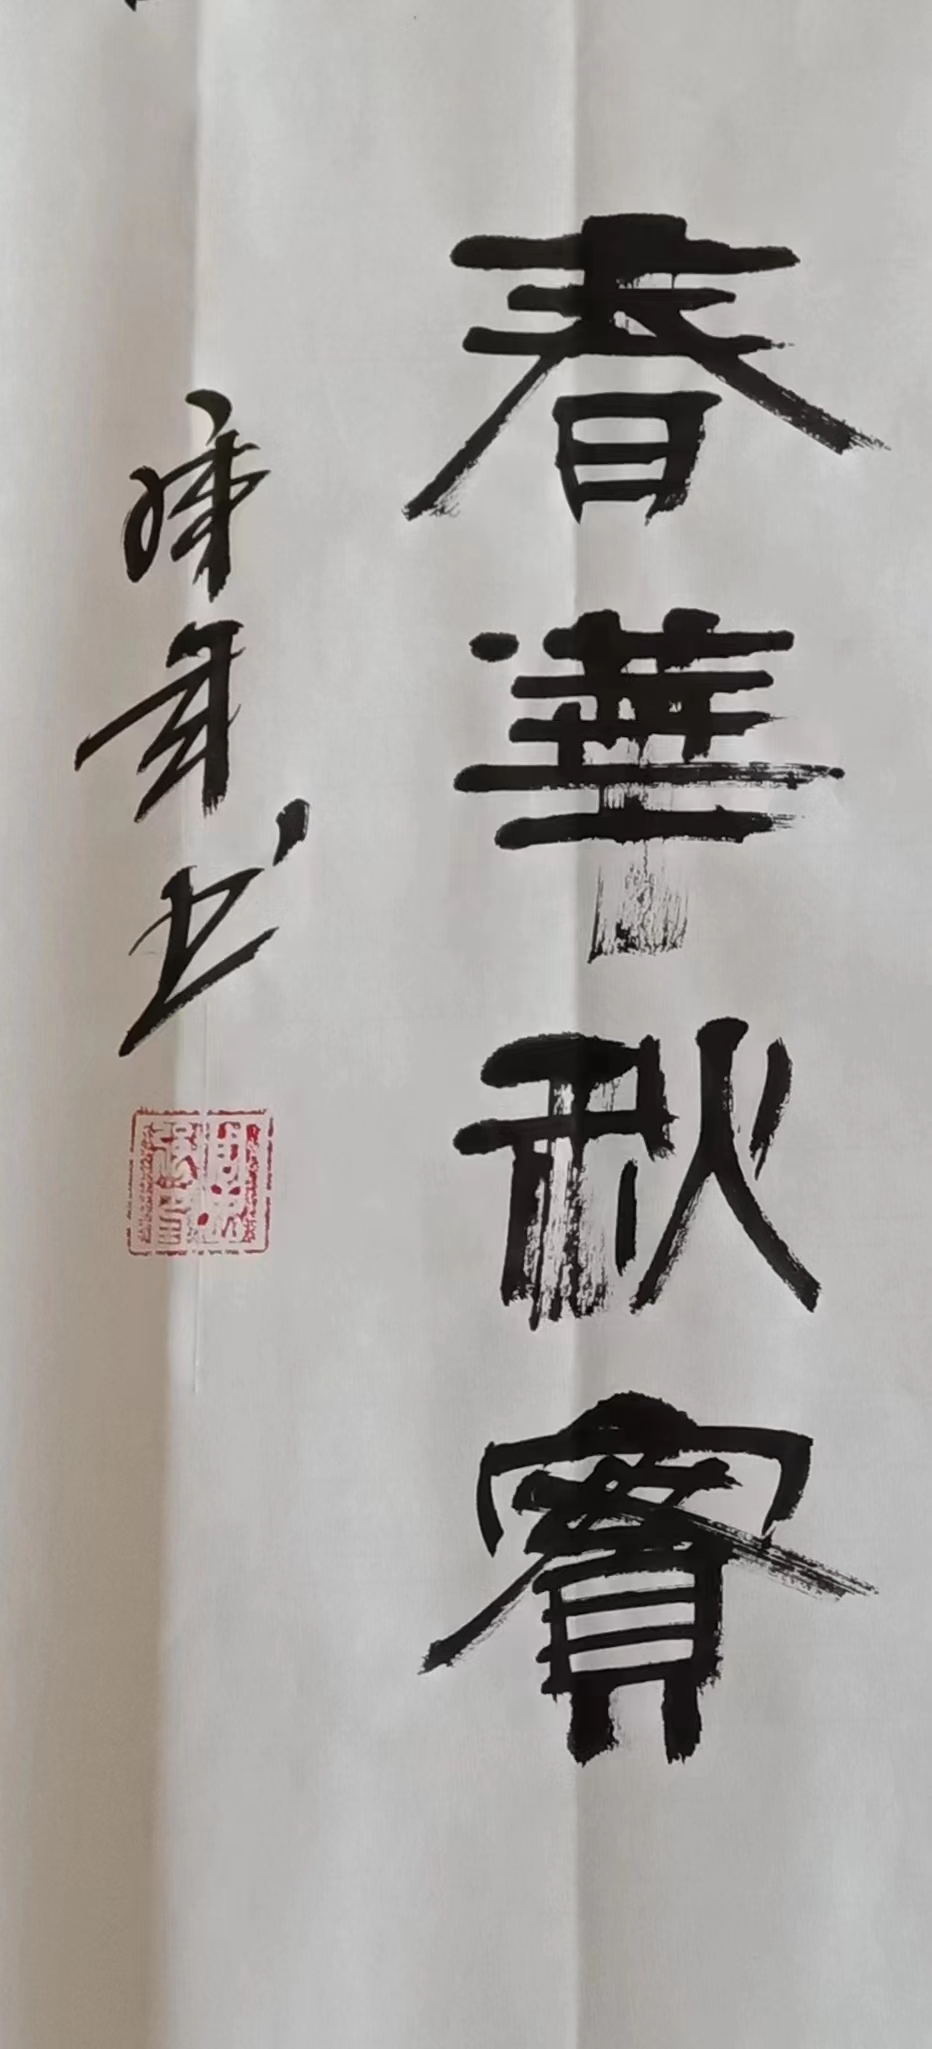 春華秋實
书